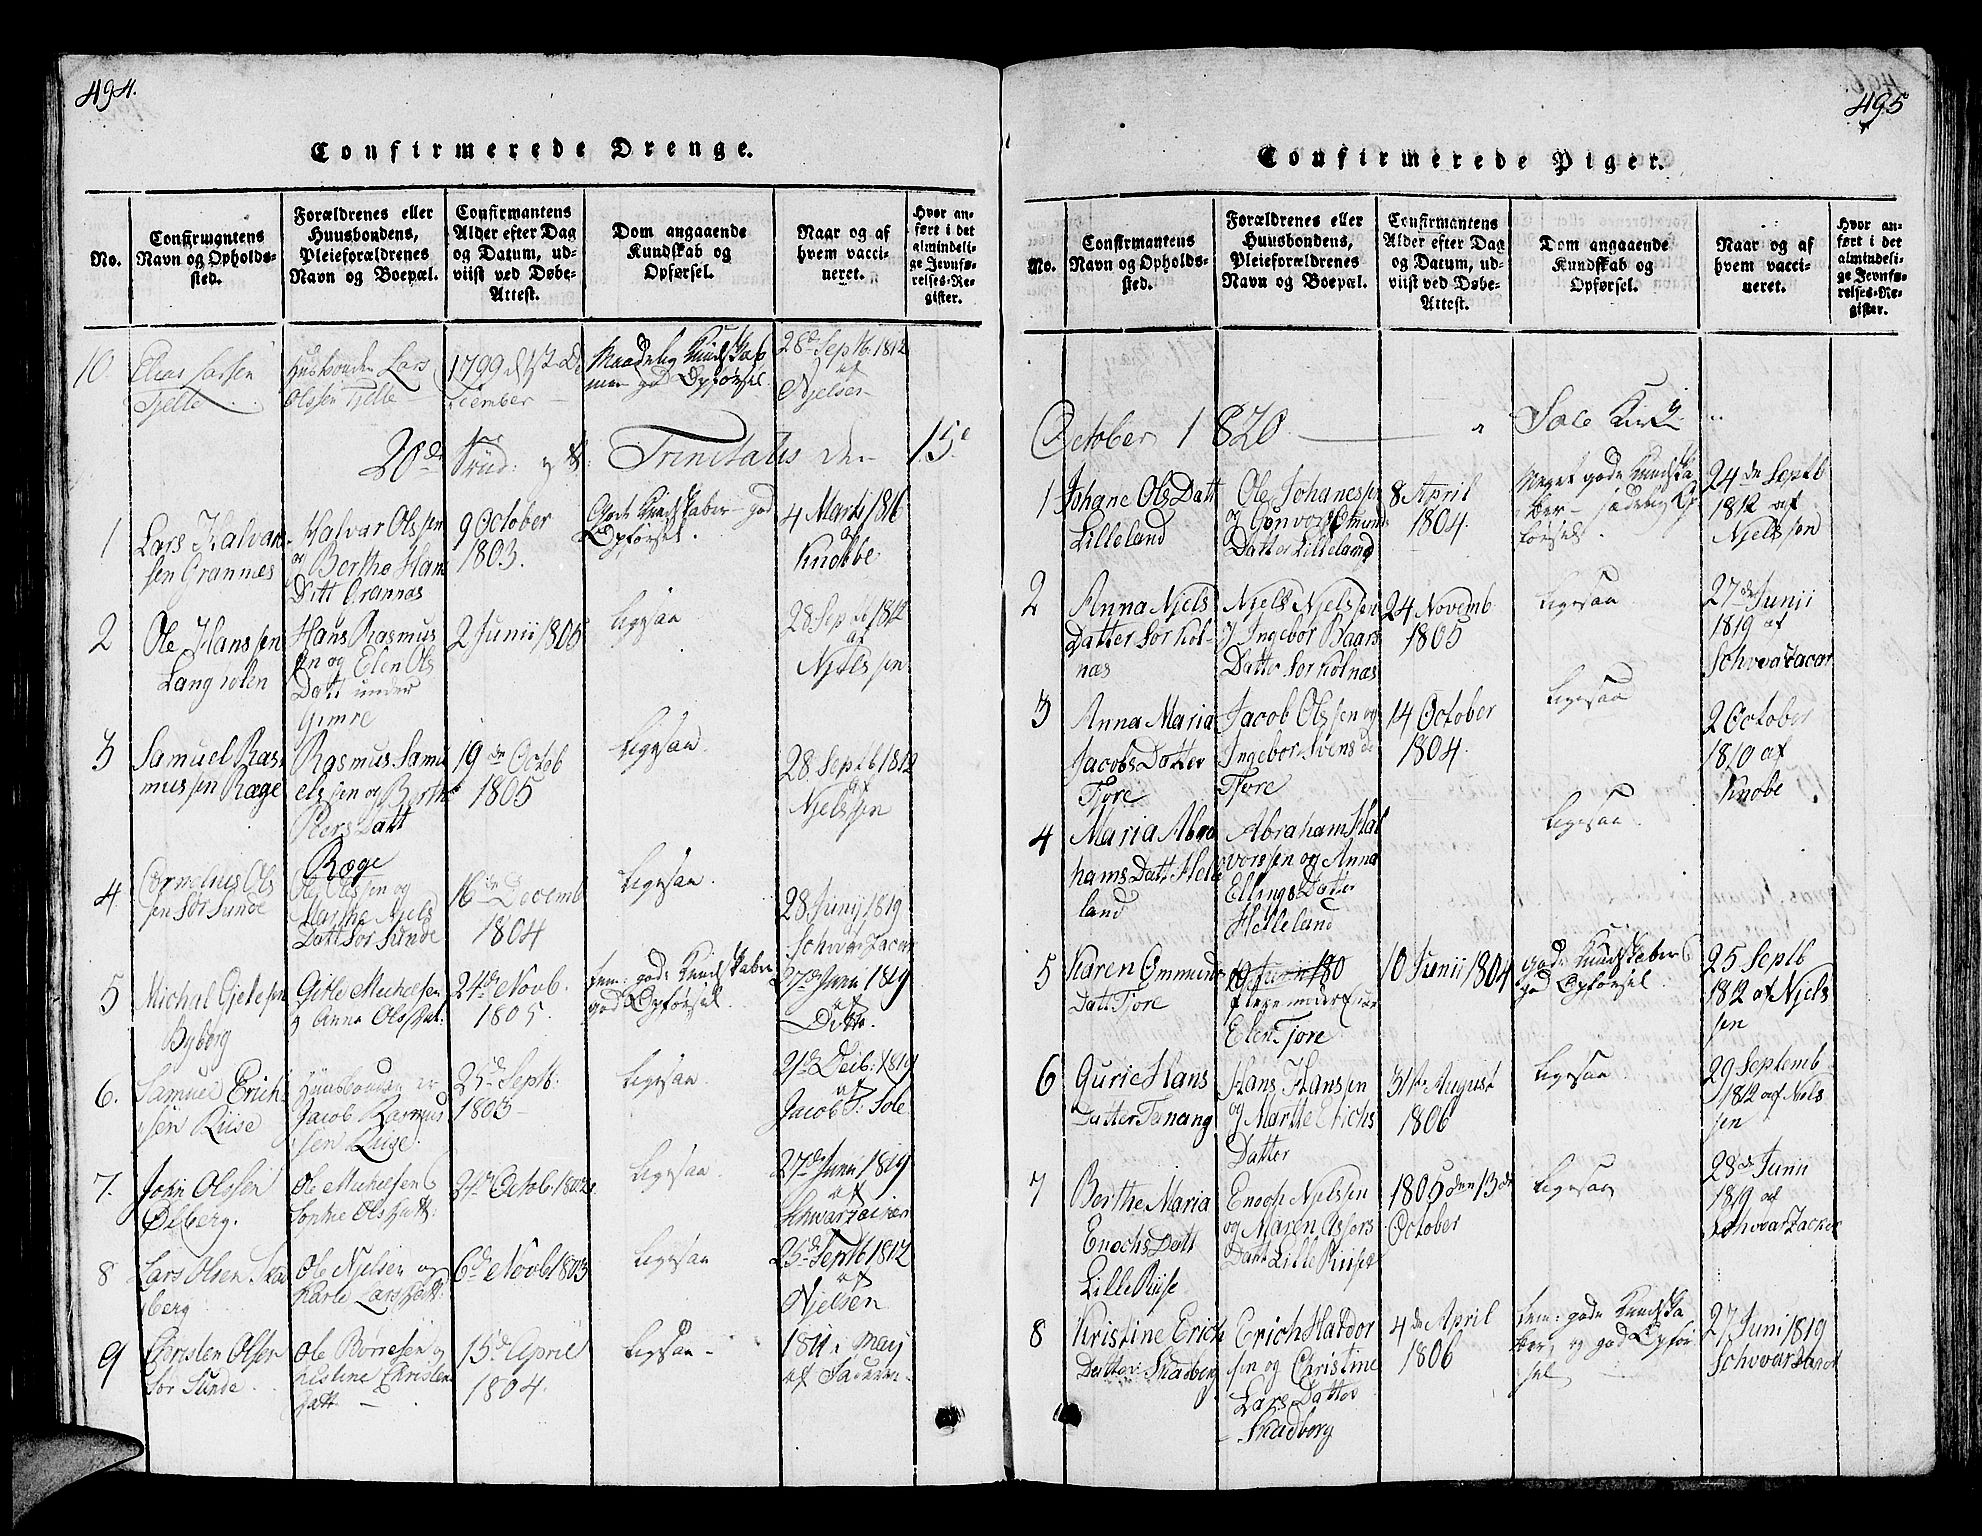 494.
Confirmerede Drenge.
No.
Confirmantens
Navn og Opholds-
sted.
Forældrenes eller
Huusbondens,
Pleieforældrenes
Navn og Boepæl.
Confirmantens
Alder efter Dag
og Datum, ud-
viist ved Døbe-
Attest.
Dom angaaende
Kundskab og
Opførsel.
Naar og af
hvem vacci-
neret.
Hvor an-
ført i det
almindeli-
ge Jevnfø-
relses-Re-
gister.
10.
Elias Larsen
Tjelte
Husbonden Lars
Olssen Tjelte
1799 d 1st De
cember
Maadelig Kundskab
men god Opførsel
28de Septb. 1812
af
Njelsen
20de Trinitatis den 15de
1
Lars Halvar
sen Grannæs
Halvar Olssen
og Berthe Ham
Datt Grannæs
9 October
1803.
Gode Kundskaber god
Opførsel.
4 Marts 1816
af
Knobbe
2
Ole Hanssen
Langholen
Hans Rasmus
sen og Elen Ols
Datt under
Gimre
2 Junii 1805
Ligesaa
28 Septb 1812
af
Njelssen
3
Samuel Ras
mussen Ræge
Rasmus Samu
elssen og Berthe
Peers Datt
Ræge
19de Octob
1805
Ligesaa
28 Septb 1812
af
Njelssen
4
Cornelius Ols
sen Sør Sunde
Ole Olssen og
Marthe Njels
Datt Sør Sunde
16de Decemb
1804
Ligesaa.
28 Junij 1819
Schvartzacer
5
Michel Gjetlesen
Byberg
Gitle Michelsen
og Anna Olsdat.
24de Novb.
1805.
Tem: gode Kundskaber
god Opførsel
27de Junii 1819
af
Ditto.
6.
Samuel Erich
sen Riise
Huusbonden er
Jacob Rasmus
sen Riise.
25de Septb:
1803
Ligesaa
21de Decb: 1819
af
Jacob T: Sole
7.
John Olssen
Ølberg.
Ole Michelsen
Sophie Olsdatt:
21de Octob. 1802
Ligesaa.
27de Junii 1819
af
Schwartzacher
8
Lars Olsen Ska
berg
Ole Njelsen og
Karle Larsdatt:
6de Novb 1803
Ligesaa
25de Septb 1812
af
Njelsen
9
Christen Olsen
Sør Sunde
Ole Børresen og
Christine Christen
Datt
15de April
1804.
Ligesaa
1811 i Maij
af
495
Confirmerede Piger.
No.
Confirmantens
Navn og Opholds-
sted.
Forældrenes eller
Huusbondens,
Pleieforældrenes
Navn og Boepæl.
Confirmantens
Alder efter Dag
og Datum, ud-
viist ved Døbe-
Attest.
Dom angaaende
Kundskab og
Opførsel.
Naar og af
hvem vacci-
neret.
Hvor an-
ført i det
almindeli-
ge Jevnfø-
relses-Re-
gister.
October 1820 Sole Kirke
1
Johane Ols Datt
Lilleland
Ole Johanessen
og Gunvor Omund
Datter Lilleland
8 April
1804.
Meget gode Kundska
ber sædelig Op
førsel.
24de Septb
1812 af
Njelssen
2
Anna Njels
Datter Sør Kol-
næs
Njels Njelssen
og Ingebor Baars
Datter Sør Kolnæs
24 Novemb
1805
Ligesaa
27de Junii
1819 af
Schvartzacer
3
Anna Maria
Jacobs Datter
Tjore
Jacob Olssen og
Ingebor Svens d
Tjore
14 October
1804.
Ligesaa
2 October
1810 af
Knobe
4
Maria Abra
hams Datt Helle
land
Abraham Hal
vorssen og Anna
Ellings Datter
Helleland
Ligesaa.
5
Karen Ommund
Datt Tjore
19 Junii 180
Elen Tjore
10 Junii 1804
gode Kundskaber
god Opførsel
25 Septb
1812 af Njels
sen
6
Gurie Hans
Datter Tanang
Hans Hanssen
og Marthe Erichs
Datter
31te August
1806
Ligesaa
29 Septemb
1812 af Niels
sen
7
Berthe Maria
Enochs Datt
Lille Riise
Enoch Njelssen
og Maren Assers
Datt Lille Riise
1805 den 13de
October
Ligesaa
28de Junii
1819 af
Schvartzacker
8
Kristine Erich
Datter Skadberg
Erich Haldor
sen og Christine
Lars Datter
Skadberg
4de April
1806
Tem: gode Kundska
ber, og god Opfør
sel
27 Juni 1819
Schvartzacer